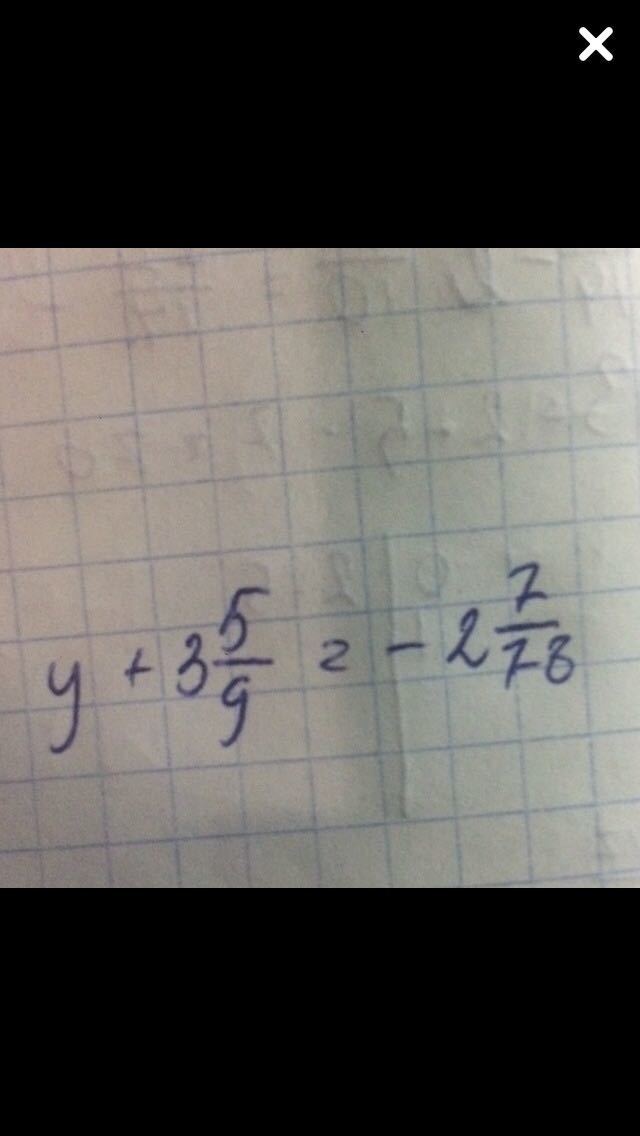 y + 3 5/9 = - 2 7/78